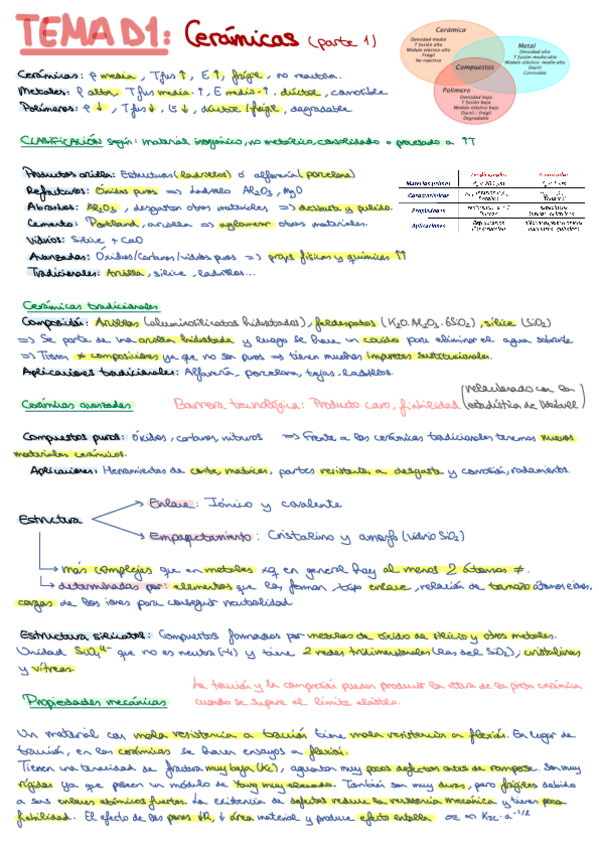 TEMA D1: Cerámicas (parte 1)
Cerámica
Densidad media
↑ fusión alta
Módulo elástico alto
Fragil
No reactiva
Metal
Densidad alta
↑ fusión media-alta
Módulo elástico medio-alto
Dúctil
Corrosible
Compuestos
Polímero
Densidad baja
↑ fusión baja
Módulo elástico bajo
Dúctil / frágil
Degradable
Cerámicas: ρ media, Tfus ↑, E ↑, frágil, no reactiva.
Metales: ρ alta, Tfus media-↑, E medio-↑, dúctor, corrosible
Polímeros: ρ ↓, Tfus ↓, E ↓, dúctor/frágil, degradable
CLASIFICACIÓN según: material inorgánico, no metálico, consolidado o procesado a ↑T
Productos arcilla: Estructuras (ladrillos) ó alfarería (porcelana)
Refractarios: Óxidos puros => Ladrillo Al2O3, MgO
Abrasivos: Al2O3, desgastan otros materiales => desbaste y pulido.
Cemento: Portland, arcilla => aglomeran otros materiales.
Vidrios: Sílice + CaO
Avanzadas: Óxidos/carburos/nitruros puros => props físicas y químicas ↑↑
Tradicionales: Arcilla, sílice, ladrillos...
Tradicionales Avanzadas
Materias primas
Características
Propiedades
Aplicaciones
Cerámicas tradicionales
Composición: Arcillas (aluminosilicatos hidratados), feldespatos (K2O.Al2O3.6SiO2), sílice (SiO2)
=> Se parte de una arcilla hidratada y luego se hace un cocido para eliminar el agua sobrante
=> Tienen ≠ composiciones ya que no son puros => tienen muchas impurezas sustitucionales.
Aplicaciones tradicionales: Alfarería, porcelana, tejas, ladrillos.
Cerámicas avanzadas Barrera tecnológica: Producto caro, fiabilidad (relacionado con la estadística de Weibull)
Compuestos puros: óxidos, carburos, nitruros => Frente a las cerámicas tradicionales tenemos nuevos
materiales cerámicos.
Aplicaciones: Herramientas de corte, matrices, partes resistentes a desgaste y corrosión, rodamientos.
Estructura
Enlace: Iónico y covalente
Empaquetamiento: Cristalino y amorfo (vidrio SiO2)
más complejas que en metales xq en general hay al menos 2 átomos ≠.
determinadas por: elementos que las forman, tipo enlace, relación de tamaño átomos e iones,
cargas de los iones para conseguir neutralidad
Estructura silicatos: Compuestos formados por mezclas de óxido de silicio y otros metales.
Unidad SiO4 4- que no es neutra (-4) y tiene 2 redes tridimensionales (las del SiO2); cristalinas
y vítreas.
La tracción y la compresión pueden producir la rotura de la pieza cerámica
cuando se supere el límite elástico.
Propiedades mecánicas
Un material con mala resistencia a tracción tiene mala resistencia a flexión. En lugar de
tracción, en las cerámicas se hacen ensayos a flexión.
Tienen una tenacidad de fractura muy baja (Kc), aguantan muy pocos defectos antes de romperse. Son muy
rígidas ya que poseen un módulo de Young muy elevado. También son muy duras, pero frágiles debido
a sus enlaces atómicos fuertes. La existencia de defectos reduce la resistencia mecánica y tienen poca
fiabilidad. El efecto de los poros ↓R, ↓ área material y produce efecto entalla